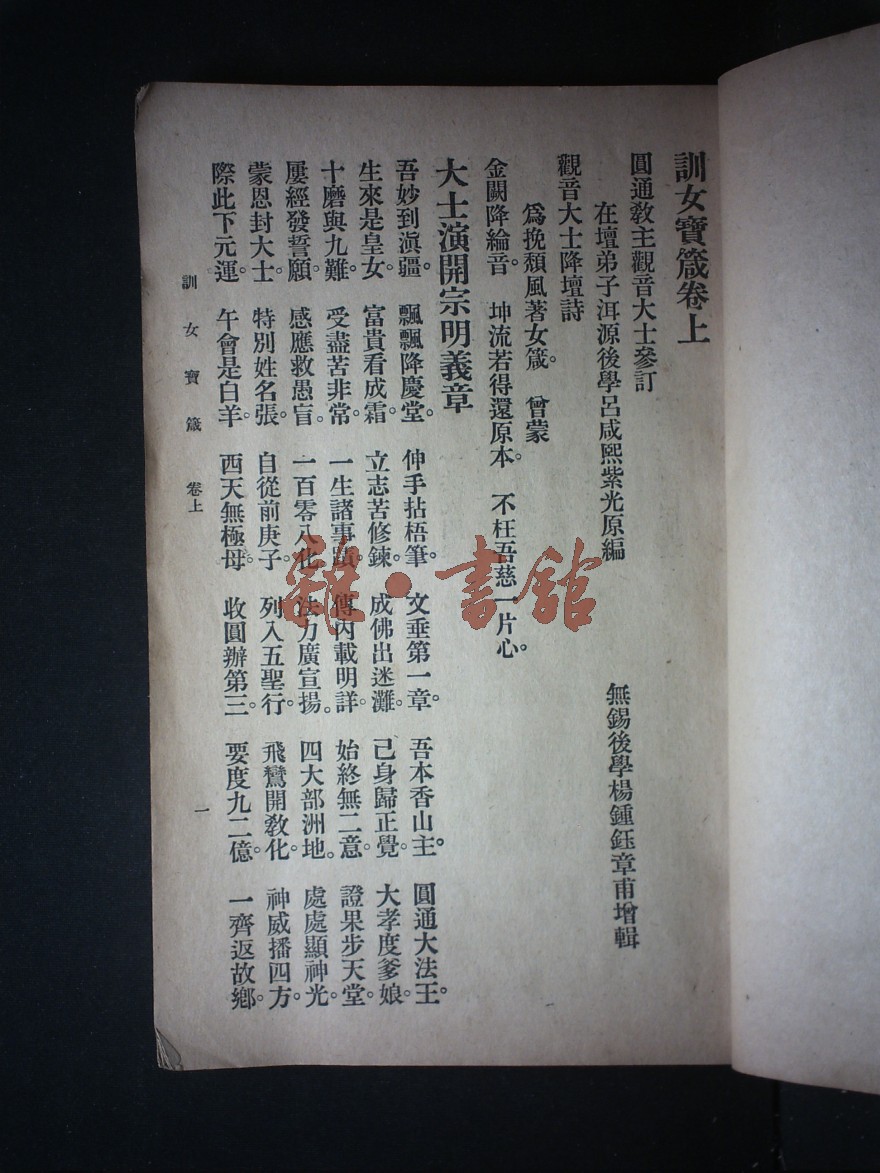 訓女寶箴卷上
圓通教主觀音大士參訂
在壇弟子洱源後學呂咸熙紫光原編 無錫後學楊鍾鈺章甫增輯
觀音大士降壇詩
爲挽頹風著女箴。 曾蒙
金闕降綸音。 坤流若得還原本。 不枉吾慈一片心。
大士演開宗明義章
吾妙到滇疆。 飄飄降慶堂。 伸手拈梧筆。 文垂第一章。 吾本香山主。 圓通大法王。
生來是皇女。 富貴看成霜。 立志苦修鍊。 成佛出迷灘。 己身歸正覺。 大孝度爹娘。
十磨與九難。 受盡苦非常。 一生諸事蹟。 傳內載明詳。 始終無二意。 證果步天堂。
屢經發誓願。 感應救愚盲。 一百零八化。 法力廣宣揚。 四大部洲地。 處處顯神光。
蒙恩封大士。 特別姓名張。 自從前庚子。 列入五聖行。 飛鸞開教化。 神威播四方。
際此下元運。 午會是白羊。 西天無極母。 收圓辦第三。 要度九二億。 一齊返故鄉。
訓女寶箴 卷上 一
雜·書館